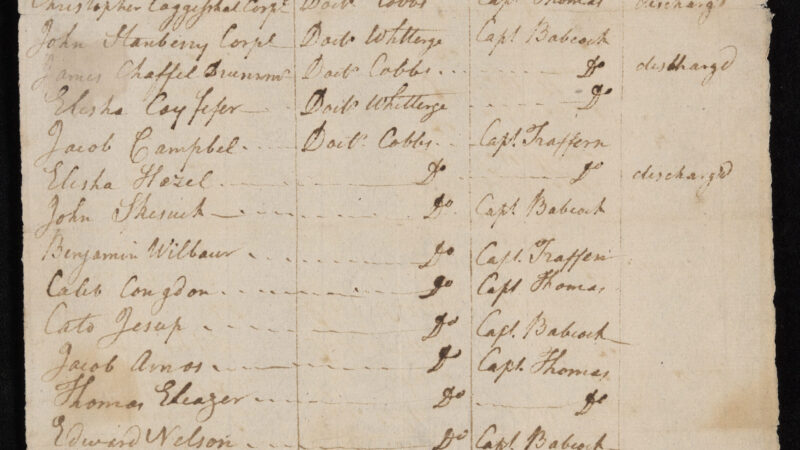 Christopher Coggeshal Corpl Doctr Cobbs Capt Thomas discharg'd
John Stanberry Corpl Doctr Whitterge Capt Babcock
James Chaffel Doctr Cobbs Do discharg'd
Elisha Coy fifer Doctr Whitterge Do
Jacob Campbel Doctr Cobbs Capt Traffern
Elisha Hazel Do Do discharg'd
John Skesuck Do Capt Babcock
Benjamin Wilbour Do Capt. Traffern
Caleb Congdon Do Capt Thomas
Cato Jesup Do Capt Babcock
Jacob Amos Do Capt Thomas
Thomas Eleazer Do Do
Edward Nelson Do Capt Babcock